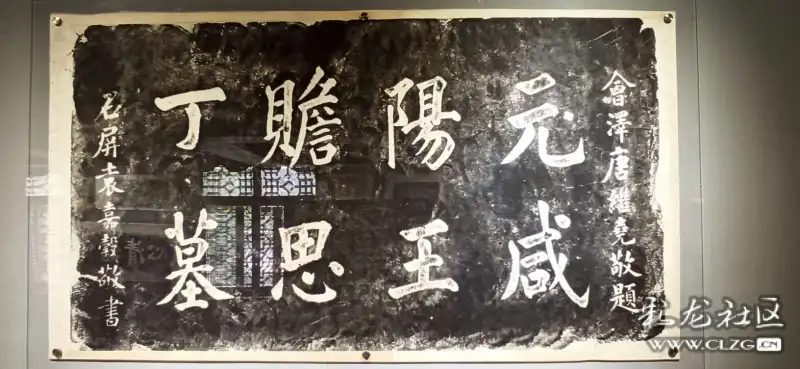 會澤唐繼堯敬題
元咸
陽王
贍思
丁墓
石屏袁嘉穀敬書
彩龙社区
WWW.CLZG.CN